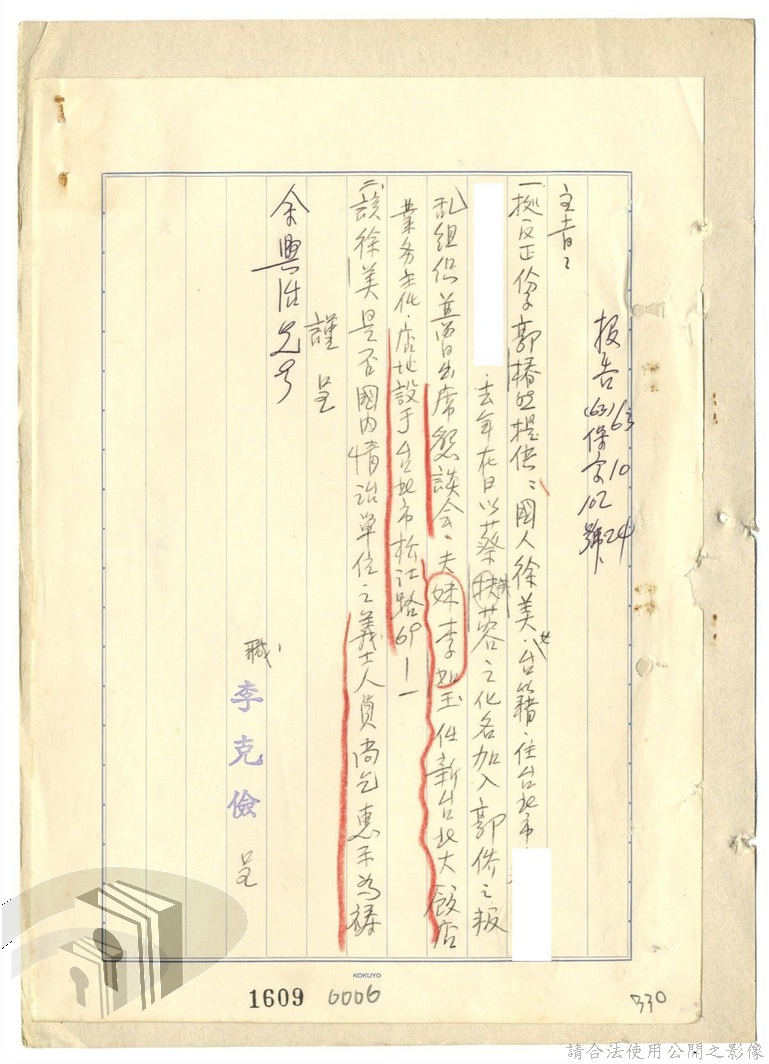 报告 63 10 24
(63)保字102號
主旨：
一、據反正份子郭椿然提供：國人徐美，女，台籍，住台北市
，去年在日以蔡扶蓉之化名加入郭僑之叛
乱組织並曾出席懇談会，夫妹李如玉任新台北大飯店
業务主任，店址設于台北市松江路69－1
二、該徐美是否國內情治單位之義士人員尚乞惠示為禱
謹呈
余興
職 李克儉 呈
KOKUYO
1609 0006
330
請合法使用公開之影像